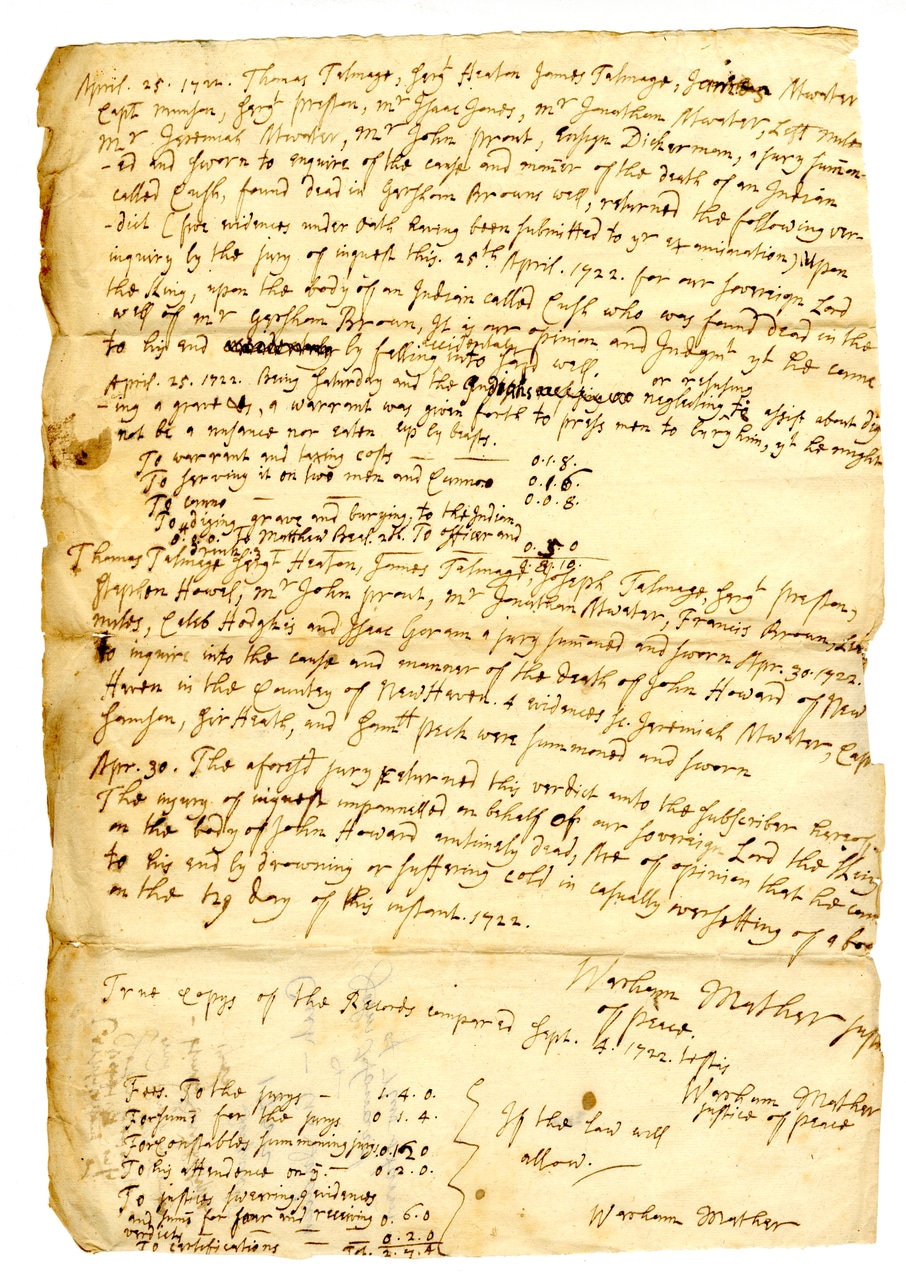 April. 25. 1722. Thomas Talmage, Serjt Heaton James Talmage, Atwater
Capt munson, Serjt preston, mr Isaac Jones, mr Jonathan Atwater, Left miles
mr Jeremiah Atwater, Mr John Prout, Ensign Dickerman, a jury summon-
-ed and sworn to enquire of the cause and manner of the death of an Indian
called Cush, found dead in Gersham Browns well, returned the following ver-
-dict (the evidences under oath having been submitted to yr examination) Upon
inquiry by the jury of inquest this. 25th April. 1722. for our sovereign Lord
the King, upon the body of an Indian called Cush who was found dead in the
well of mr Gersham Brown, It is our opinion and Judgmt yt he came
to his end accidentaly by falling into said well.
April. 25. 1722. Being Saturday and the Indians neglecting or refusing to assist about dig
-ing a grave &s, a warrant was given forth to press men to bury him, yt he might
not be a nusance nor eaten up by beasts.
To warrant and taxing costs — — 0. 1. 8.
To serving it on two men and Cannoo 0. 1. 6.
To canno — — — 0. 0. 8.
To diging grave and burying, to the Indian
0. 4. 0. To Matthew Beal. 2sh. To officer and
drink 0. 5. 0
Thomas Talmage Serjt Heaton, James Talmage, Joseph Talmage, Serjt preston,
Stephen Howel, mr John prout, mr Jonathan Atwater, Francis Brown,
miles, Caleb Hodgkis and Isaac Goram a jury summoned and sworn Apr. 30. 1722.
to inquire into the cause and manner of the death of John Howard of New
Haven in the Countey of New Haven. 4 evidences sc. Jeremiah Atwater, Cap
Samson, Sir Heath, and Samll Peck were summoned and sworn
Apr. 30. The aforesd jury returned this verdict unto the subscriber hereof.
The injury of inquest impannilled on behalf of our sovereign Lord the King
on the body of John Howard untimely dead, Are of opinion that he cam
to his end by drowning or suffering cold in casually oversetting of a boa
on the day of this instant. 1722.
Warham Mather Just
of peace.
True Copys of the Records compared Sept. 4. 1722. testis
Warham Mather
Justice of peace
Fees. To the jurys — 1. 4. 0.
For sums for the jurys 0. 1. 4.
For Constables summoning jury
To his attendence on ym. — 0. 2. 0.
To justices swearing evidences
and sums for four and receiving 0. 6. 0
verdicts
To certifications — — 0. 2. 0
If the law will
allow.
Warham Mather